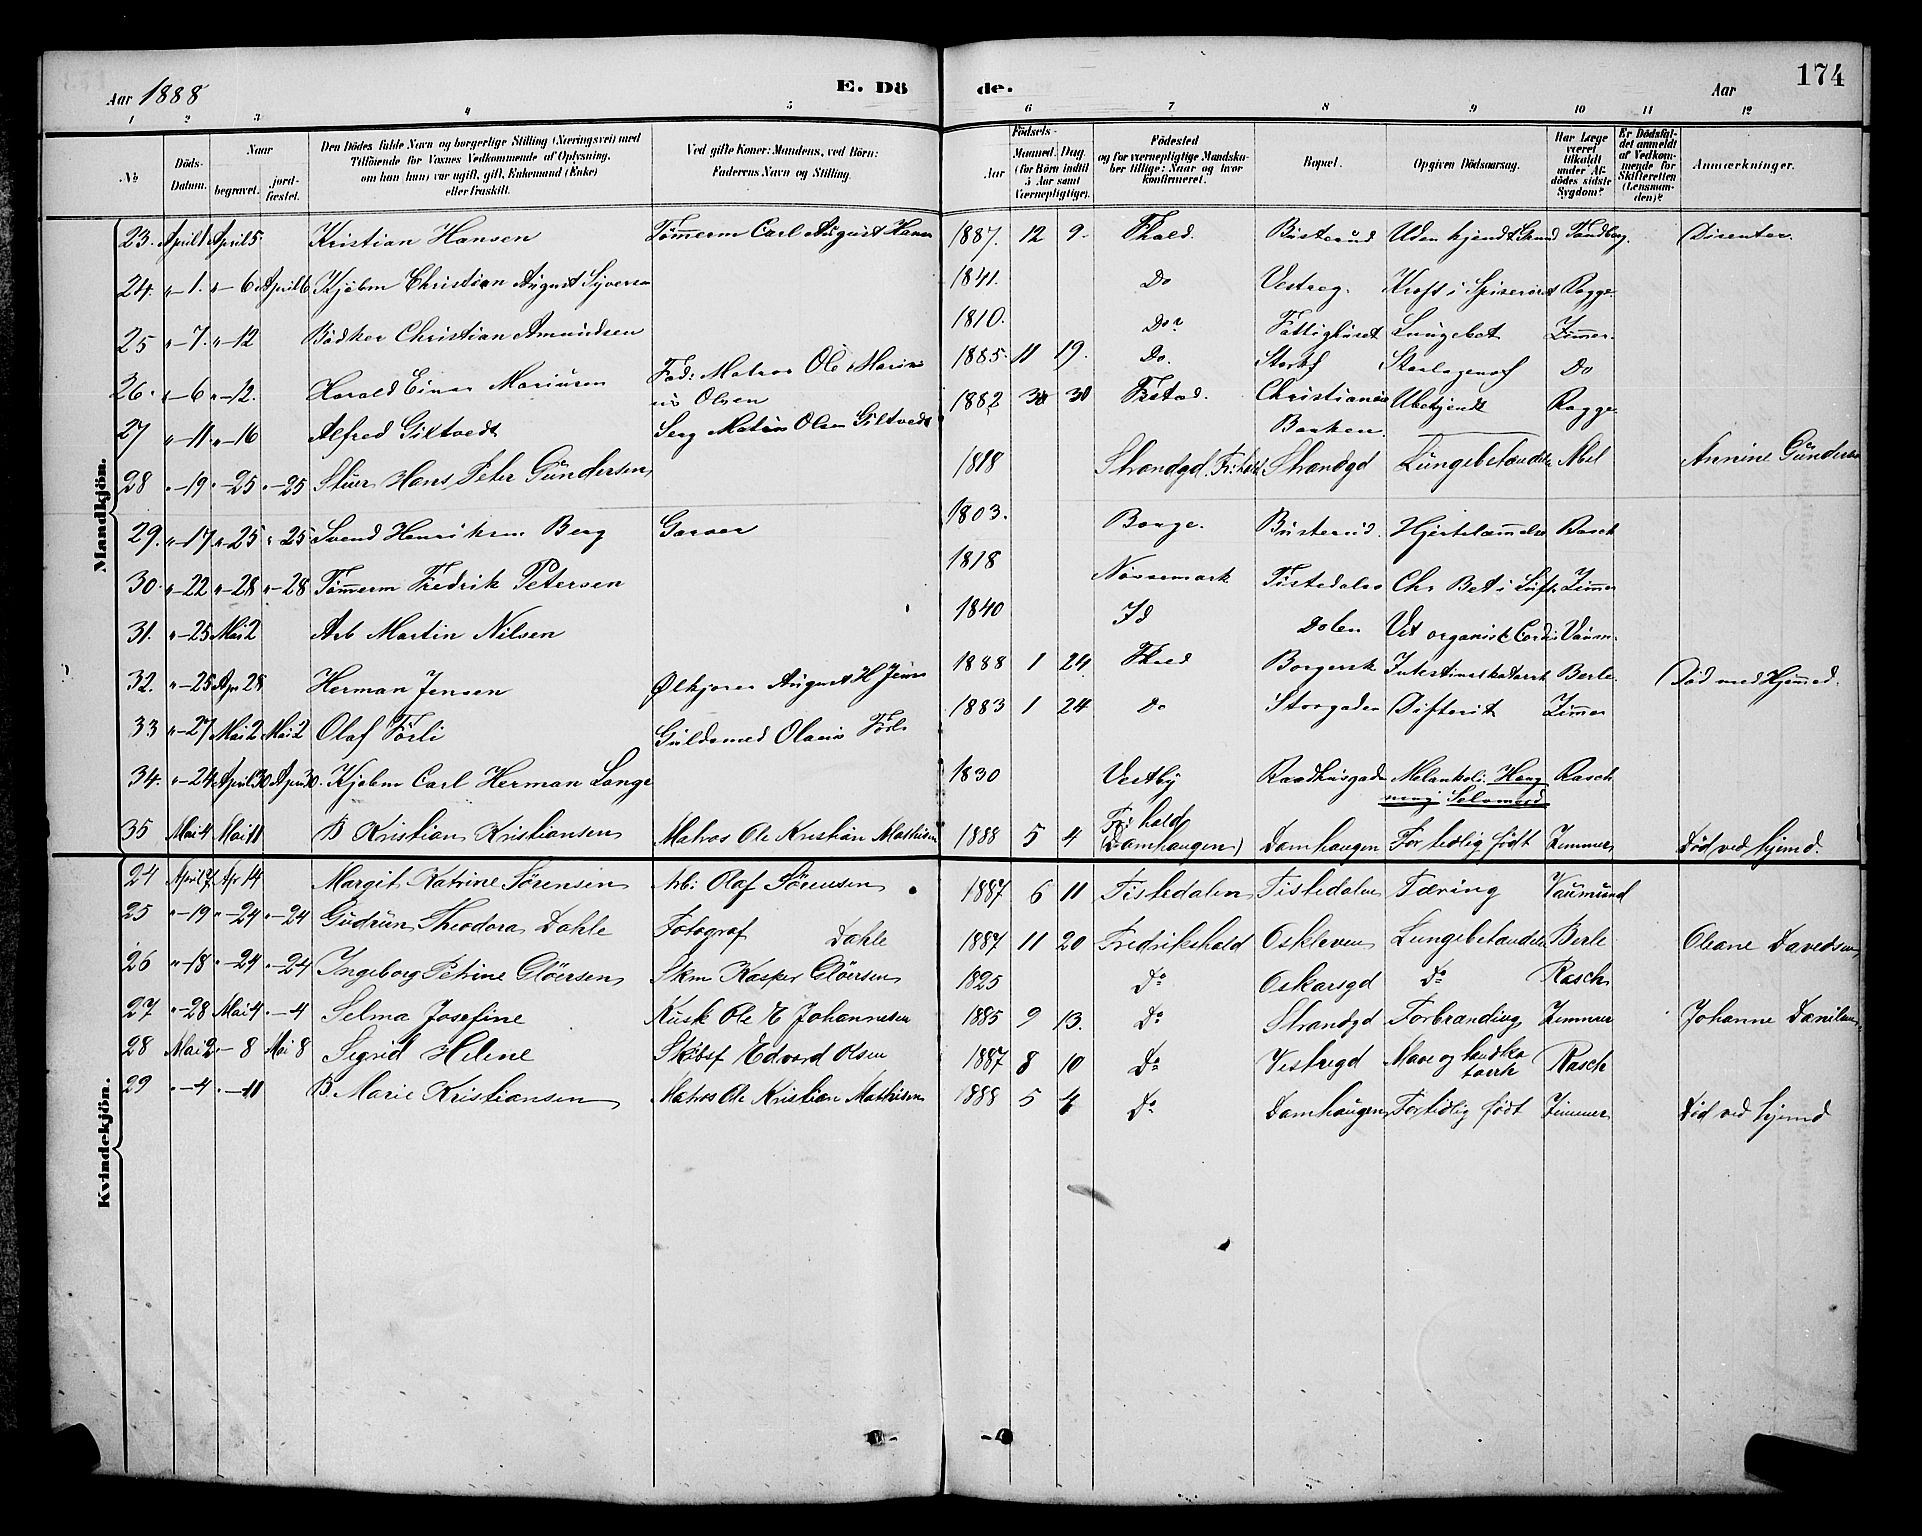 Aar 1888 E. Dö de. Aar 174
1 2 3 4 5 6 7 8 9 10 11 12
No Döds-Datum. Naar begravet. jord-fæstet. Den Dödes fulde Navn og borgerlige Stilling (Næringsvei) med Tilföiende for Voxnes Vedkommende af Oplysning, om han (hun) var ugift, gift, Enkemand (Enke) eller fraskilt. Ved gifte Koner: Mandens, ved Börn: Faderens Navn og Stilling. Födsels- Aar Maaned. Dag. (for Börn indtil 5 Aar samt Værnepligtige). Födested og for værnepligtige Mandskaber tillige: Naar og hvor konfirmeret. Bopæl. Opgiven Dödsaarsag. Har Læge været tilkaldt under Afdödes sidste Sygdom? Er Dödsfaldet anmeldt af Vedkommende for Skifteretten (Lensmanden)? Anmærkninger.
Mandkjön.
23. April 1 April 5 Kristian Hansen Tømmerm Carl August Hansen 1887. 12 9. Fhald. Busterud Uden kjendt Grund Sandberg. Disenter.
24. "-1. "-6 April 6 Kjøbm Christian August Syversen 1841. Do Vestreg. Kræft i Spiserøret Rogge.
25 "-7. "-12 Bødker Christian Amundsen 1810. Do Fattighuset Lungebet Zimmer.
26. "-6 "-12. Harald Einar Mariusen Fad: Matros Ole Marinius Olsen 1885. 11 19. Do. Do
27 "-11 "-16 Alfred Giltvedt Serg Olsen Giltvedt 1882 30 Fstad. Christiania Banken. Ubekjendt Rogge.
28 "-19 "-25 "-25 Stuer Hans Peter Gundersen 1818 Strandgd. Frhald Strandgd Lungebetændelse Abel Annine Gundersen
29. "-17 "-25 "-25 Svend Henriksen Berg Garver 1803. Borge. Busterud. Hjertelammelse Rasch
30. "-22 "-28 "-28 Tømmerm Fredrik Petersen 1818 Nössemark Tistedalen Chr Bet i Luftr Zimmer
31. "-25 Mai 2 Arb Martin Nilsen 1840 Id Dalen Vit organisk Cordis Vaum.
32. "-25 Apr 28 Herman Jensen Ølkjører August H Jensen 1888 1 24. Fhald Borgersk Intestinalkatarrh Berle. Død med Hjemmed.
33 "-27 Mai 2 Mai 2 Olaf Förli Guldsmed Olaus Förli 1883 1 24 Do Storgaden Difterit Zimmer
34. "-24 April 30 April 30. Kjøbm Carl Herman Lange 1830 Vestby Raadhusgaden Melankoli. Hængning Selvmord Rasch
35 Mai 4 Mai 11 B Kristian Kristiansen Matros Ole Kristian Mathisen 1888 5 4 Fr: hald (Damhaugen) Damhaugen For tidlig født Zimmer Död ved hjemd.
Kvindekjön.
24 April 7 Apr 14 Margit Katrine Sørensen Arb: Olaf Sørensen 1887 6 11 Tistedalen Tistedalen Tæring Vaumund
25 "-19 "-24 "-24 Gudrun Theodora Dahle Fotograf Dahle 1887 11 20 Fredrikshald Oskleven Lungebetændelse Berle Oleane Davidsen
26 "-18 "-24 "-24 Ingeborg Petrine Glöersen Skm Kasper Glöersen 1825 Do Oskarsgd Do Rasch
27 "-28 Mai 4 "-4 Selma Josefine Kusk Ole E Johannesen 1885 9 13. Do Strandgd Forbrænding Zimmer Johanne Danielsen
28 Mai 2 "-8 Mai 8 Sigrid Helene Skibsf Edvard Olsen 1887 8 10 Do Vestregd Mave og tarmkatarrh Rasch
29 "-4 "-11 B Marie Kristiansen Matros Ole Kristian Mathisen 1888 5 4 Do Damhaugen For tidlig født Zimmer Död ved hjemd